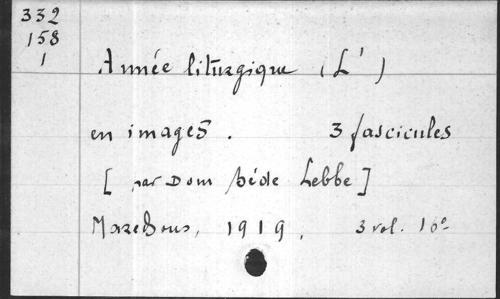 332
158
1
Année liturgique (L')
en images. 3 fascicules
[par Dom Bède Lebbe]
Maredsous, 1919. 3 vol. 10°